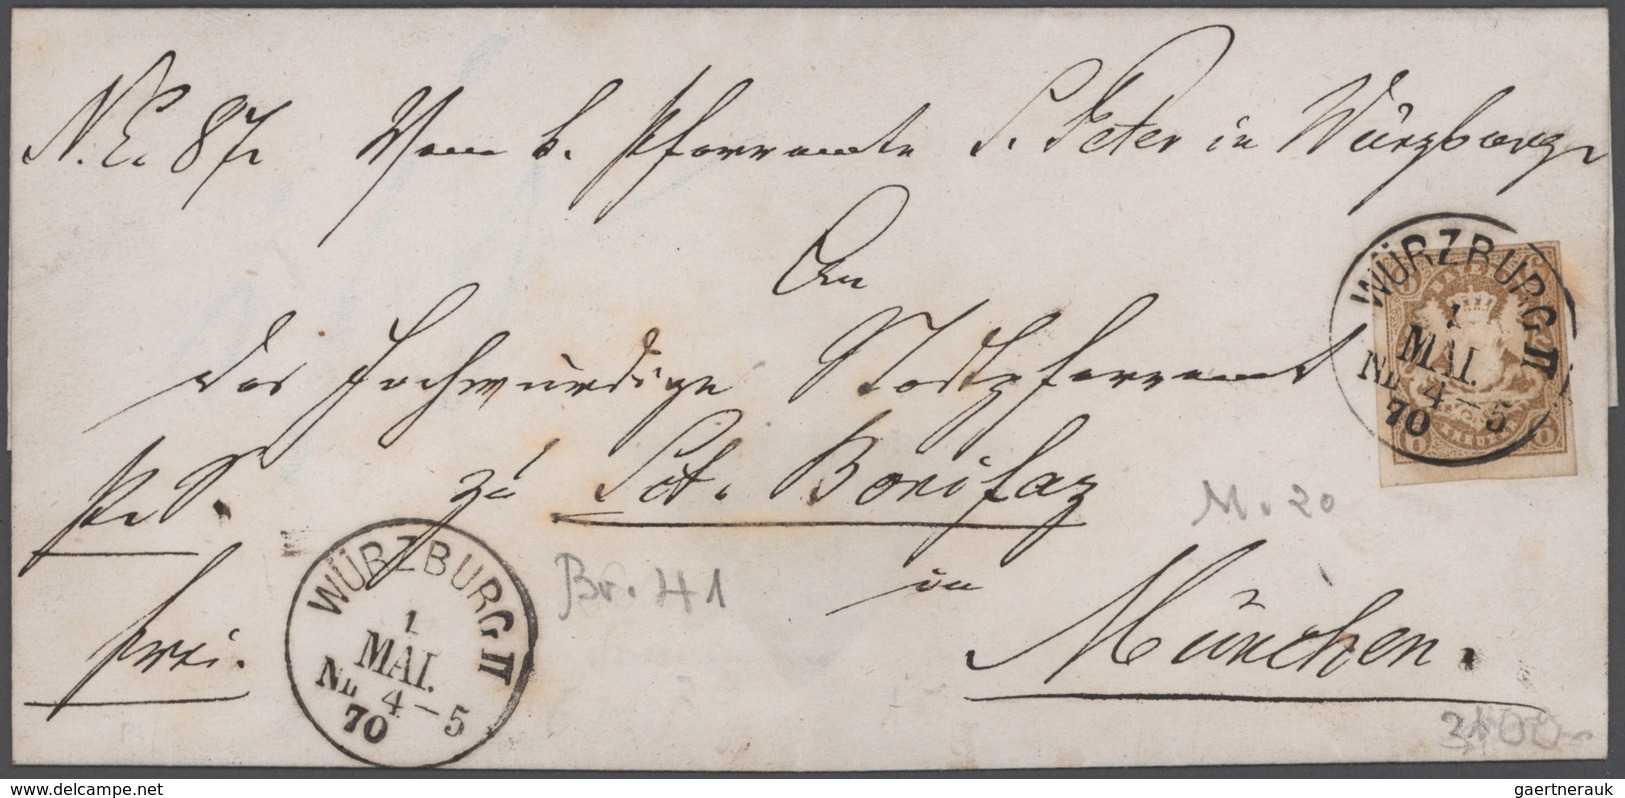 N. E. 87. Vom k. Pfarramte S. Peter in Würzburg
An
das hochwürdige Stadtpfarramt
zu Sct. Bonifaz
in
München.
P. S.
frei.
WÜRZBURG II
1
MAI.
NM 4-5
70
WÜRZBURG II
1
MAI.
NM 4-5
70
BAYERN
KREUZER
6
6
M. 20
Br. H1
gaertnerauk